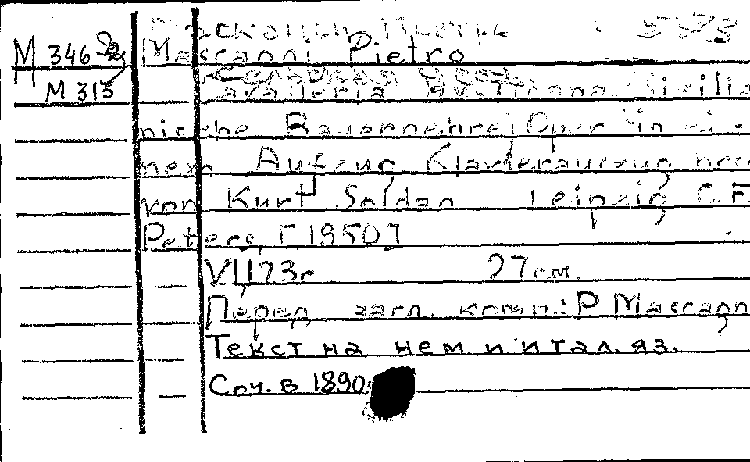 Масканьи, Пьетро
М 346
Mascanni, Pietro
М 313
Сельская честь
Cavalleria rusticana. Sizilia
nische Bauernehre Oper in ei
nem Aufzug Klavierauszug neu
von Kurt Soldan Leipzig C. F.
Peters, [1950]
VIII, 173с 27см.
Перед загл. комп.: P Mascagn
Текст на нем. и итал. яз.
Соч. в 1890